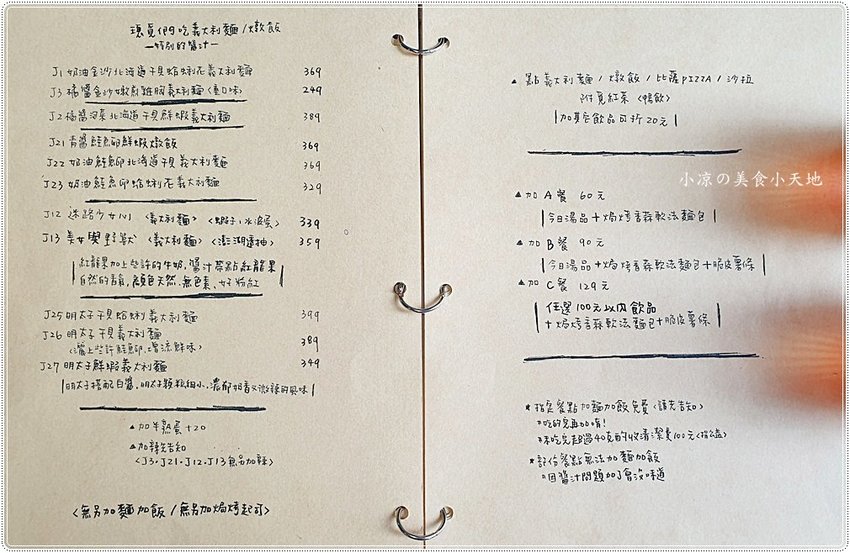 球員們吃義大利麵/燉飯
—特別的醬汁—
J1 奶油金沙北海道干貝蛤蜊花義大利麵 369
J3 橘醬金沙嫩煎雞胸義大利麵〈重口味〉 249
J2 橘醬泡菜北海道干貝鮮蝦義大利麵 389
J21 青醬鮭魚卵鮮蝦燉飯 369
J22 奶油鮭魚卵北海道干貝義大利麵 369
J23 奶油鮭魚卵蛤蜊花義大利麵 329
J12 迷路少女川〈義大利麵〉〈蝦子,水波蛋〉 339
J13 美女與野獸〈義大利麵〉〈澎湖透抽〉 359
紅龍果加上些許的牛奶,醬汁帶點紅龍果
自然的香氣,顏色天然、無色素、女孩粉紅
J25 明太子干貝蛤蜊義大利麵 399
J26 明太子干貝義大利麵 389
〈灑上些許鮭魚卵,增添鮮味〉
J27 明太子鮮蝦義大利麵 349
明太子搭配白醬,明太子顆粒細小,濃郁奶香又微辣的風味
▲加半熟蛋+20
▲加辣先告知
〈J3.J21.J12.J13無另加辣〉
〈無另加麵加飯/無另加焗烤起司〉
▲ 點義大利麵/燉飯/比薩PIZZA/沙拉
附覓紅茶〈暢飲〉
加點飲品可折20元
小凉の美食小天地
▲加A餐 60元
今日湯品+焗烤香蒜軟法麵包
▲加B餐 90元
今日湯品+焗烤香蒜軟法麵包+脆皮薯條
▲加C餐 129元
任選100元以內飲品
+焗烤香蒜軟法麵包+脆皮薯條
*指定餐點加麵加飯免費〈請先告知〉
◦吃的完再加唷!
◦未吃完超過40克酌收清潔費100元〈捐公益〉
*記住餐點無法加麵加飯
◦因醬汁問題加了會沒味道